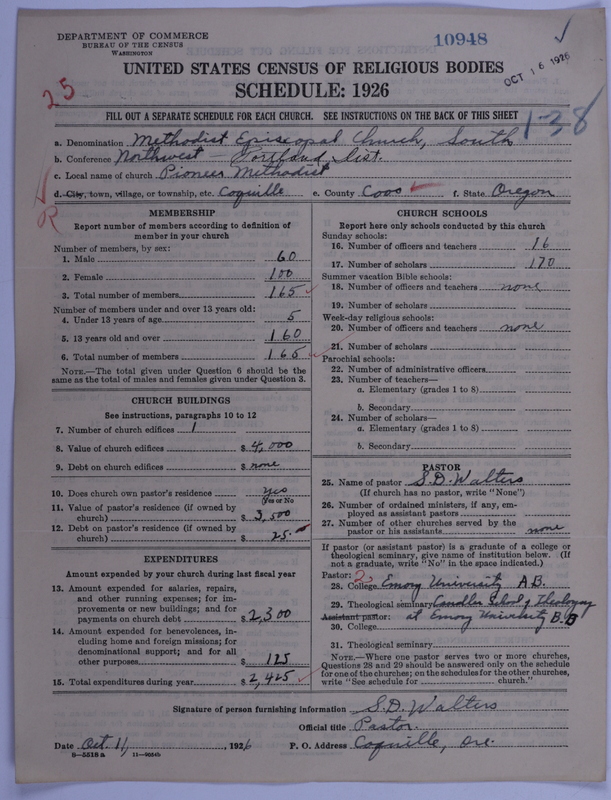 DEPARTMENT OF COMMERCE
BUREAU OF THE CENSUS
WASHINGTON
10948
OCT 16 1926
UNITED STATES CENSUS OF RELIGIOUS BODIES
SCHEDULE: 1926
25
FILL OUT A SEPARATE SCHEDULE FOR EACH CHURCH. SEE INSTRUCTIONS ON THE BACK OF THIS SHEET
1-38
a. Denomination Methodist Episcopal Church, South
b. Conference Northwest — Portland Dist.
c. Local name of church Pioneer Methodist
d. City, town, village, or township, etc. Coquille e. County Coos f. State Oregon
R
MEMBERSHIP
Report number of members according to definition of
member in your church
Number of members, by sex:
1. Male 60
2. Female 100
3. Total number of members 165
Number of members under and over 13 years old:
4. Under 13 years of age 5
5. 13 years old and over 160
6. Total number of members 165
NOTE.—The total given under Question 6 should be
same as the total of males and females given under Question 3.
CHURCH BUILDINGS
See instructions, paragraphs 10 to 12
7. Number of church edifices 1
8. Value of church edifices $ 4,000
9. Debt on church edifices $ none
10. Does church own pastor's residence yes
(Yes or No)
11. Value of pastor's residence (if owned by
church) $ 3,500
12. Debt on pastor's residence (if owned by
church) $ 25.
EXPENDITURES
Amount expended by your church during last fiscal year
13. Amount expended for salaries, repairs,
and other running expenses; for im-
provements or new buildings; and for
payments on church debt $ 2,300
14. Amount expended for benevolences, in-
cluding home and foreign missions; for
denominational support; and for all
other purposes $ 125
15. Total expenditures during year $ 2,425
CHURCH SCHOOLS
Report here only schools conducted by this church
Sunday schools:
16. Number of officers and teachers 16
17. Number of scholars 170
Summer vacation Bible schools:
18. Number of officers and teachers none
19. Number of scholars
Week-day religious schools:
20. Number of officers and teachers none
21. Number of scholars
Parochial schools:
22. Number of administrative officers
23. Number of teachers—
a. Elementary (grades 1 to 8)
b. Secondary
24. Number of scholars—
a. Elementary (grades 1 to 8)
b. Secondary
PASTOR
25. Name of pastor S.D. Walters
(If church has no pastor, write "None")
26. Number of ordained ministers, if any, em-
ployed as assistant pastors
27. Number of other churches served by the
pastor or his assistants none
If pastor (or assistant pastor) is a graduate of a college or
theological seminary, give name of institution below. (If
not a graduate, write "No" in the space indicated.)
Pastor: 2
28. College Emory University A.B.
29. Theological seminary Candler School of Theology
Assistant pastor: at Emory University B.D
30. College
31. Theological seminary
NOTE.—Where one pastor serves two or more churches,
Questions 28 and 29 should be answered only on the schedule
for one of the churches; on the schedules for the other churches,
write "See schedule for church."
Signature of person furnishing information S.D. Walters
Official title Pastor.
Date Oct. 11, 1926 P. O. Address Coquille, Ore.
8—5518 a 11—9034b